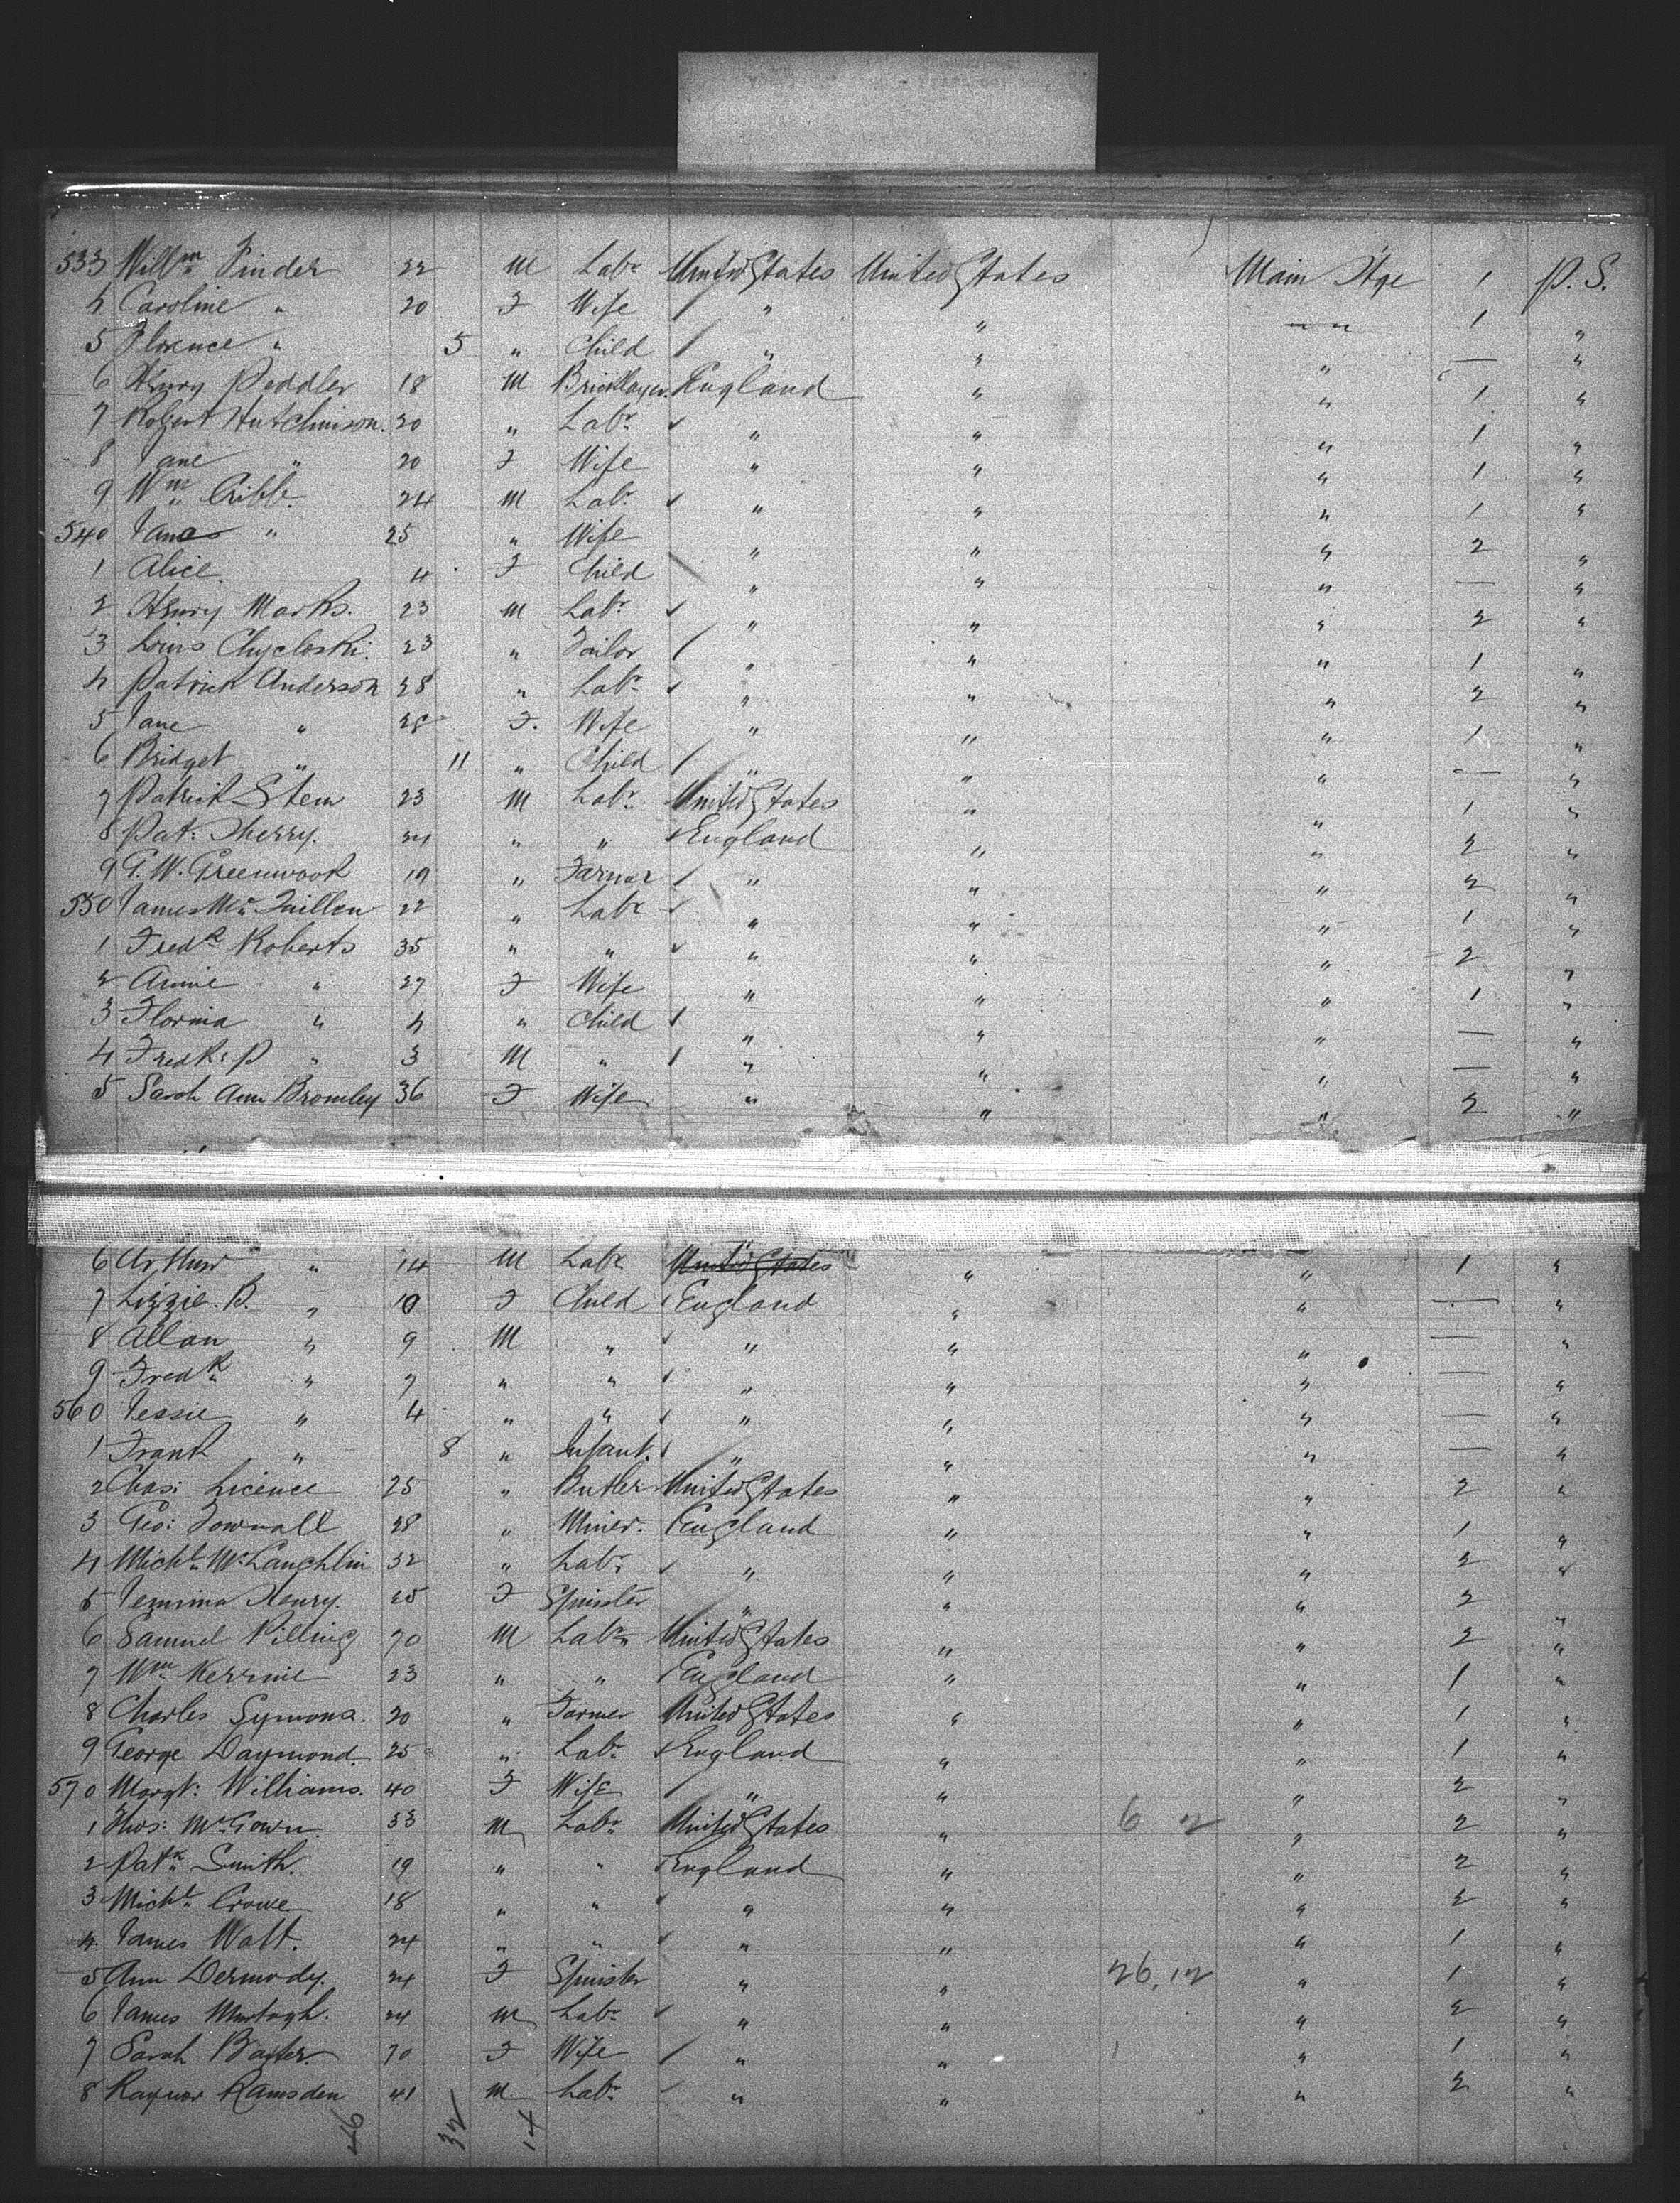 533 Willm Pinder 22 M Labr United States United States Main Stge 1 P.S.
4 Caroline " 20 F Wife " " " " 1 "
5 Florence " 5 " Child " " " — "
6 Henry Peddler 18 M Bricklayer England " " 1 "
7 Robert Hutchinson. 20 " Labr " " " 1 "
8 Jane " 20 F Wife " " " 1 "
9 Wm Cribb. 24 M Labr " " " 1 "
540 Janes " 25 " Wife " " " 2 "
1 Alice 4 F Child " " " — "
2 Henry Marks. 23 M Labr " " " 2 "
3 Louis Chycloski. 23 " Tailor " " " 1 "
4 Patrick Anderson 28 " Labr " " " 2 "
5 Jane " 28 F. Wife " " " 1 "
6 Bridget " 11 " Child " " " — "
7 Patrick Stem 23 M Labr United States " " 1 "
8 Pat: Sherry. 24 " " England " " 2 "
9 G.W. Greenwook 19 " Farmer " " " 2 "
550 James Mc Quillen 22 " Labr " " " 1 "
1 Fredk Roberts 35 " " " " " 2 "
2 Annie " 27 F Wife " " " 1 "
3 Florina " 4 " Child " " " — "
4 Fredk: P " 3 M " " " " — "
5 Sarah Ann Bromley 36 F Wife " " " 2 "
6 Arthur " 14 M Labr United States " " 1 "
7 Lizzie. B. " 10 F Child England " " — "
8 Allan " 9 M " " " " — "
9 Fredk " 7 " " " " " — "
560 Jessie " 4 " " " " " — "
1 Frank " 8 " Infant. " " " — "
2 Chas: Licence 25 " Butler United States " " 2 "
3 Geo: Townall 28 " Miner. England " " 1 "
4 Michl Mc Lauchlin 32 " Labr " " " 2 "
5 Jemima Henry. 25 F Spinster " " " 2 "
6 Samuel Pilling 70 M Labr United States " " 2 "
7 Wm Kerrine 23 " " England " " 1 "
8 Charles Symons. 20 " Farmer United States " " 1 "
9 George Daymond 25 " Labr England " " 1 "
570 Margt: Williams. 40 F Wife " " " 2 "
1 Thos: McGown. 33 M Labr United States " 6 2 " 2 "
2 Patk Smith. 19 " " England " " 2 "
3 Michl Crowe 18 " " " " " 2 "
4 James Watt. 24 " " " " " 1 "
5 Ann Dermody. 24 F Spinster " " 26. 12 " 1 "
6 James Murtagh. 24 M Labr " " " 2 "
7 Sarah Baxter. 70 F Wife " " " 1 "
8 Raynor Ramsden 41 M. Labr " " " 2 "
46 32 14